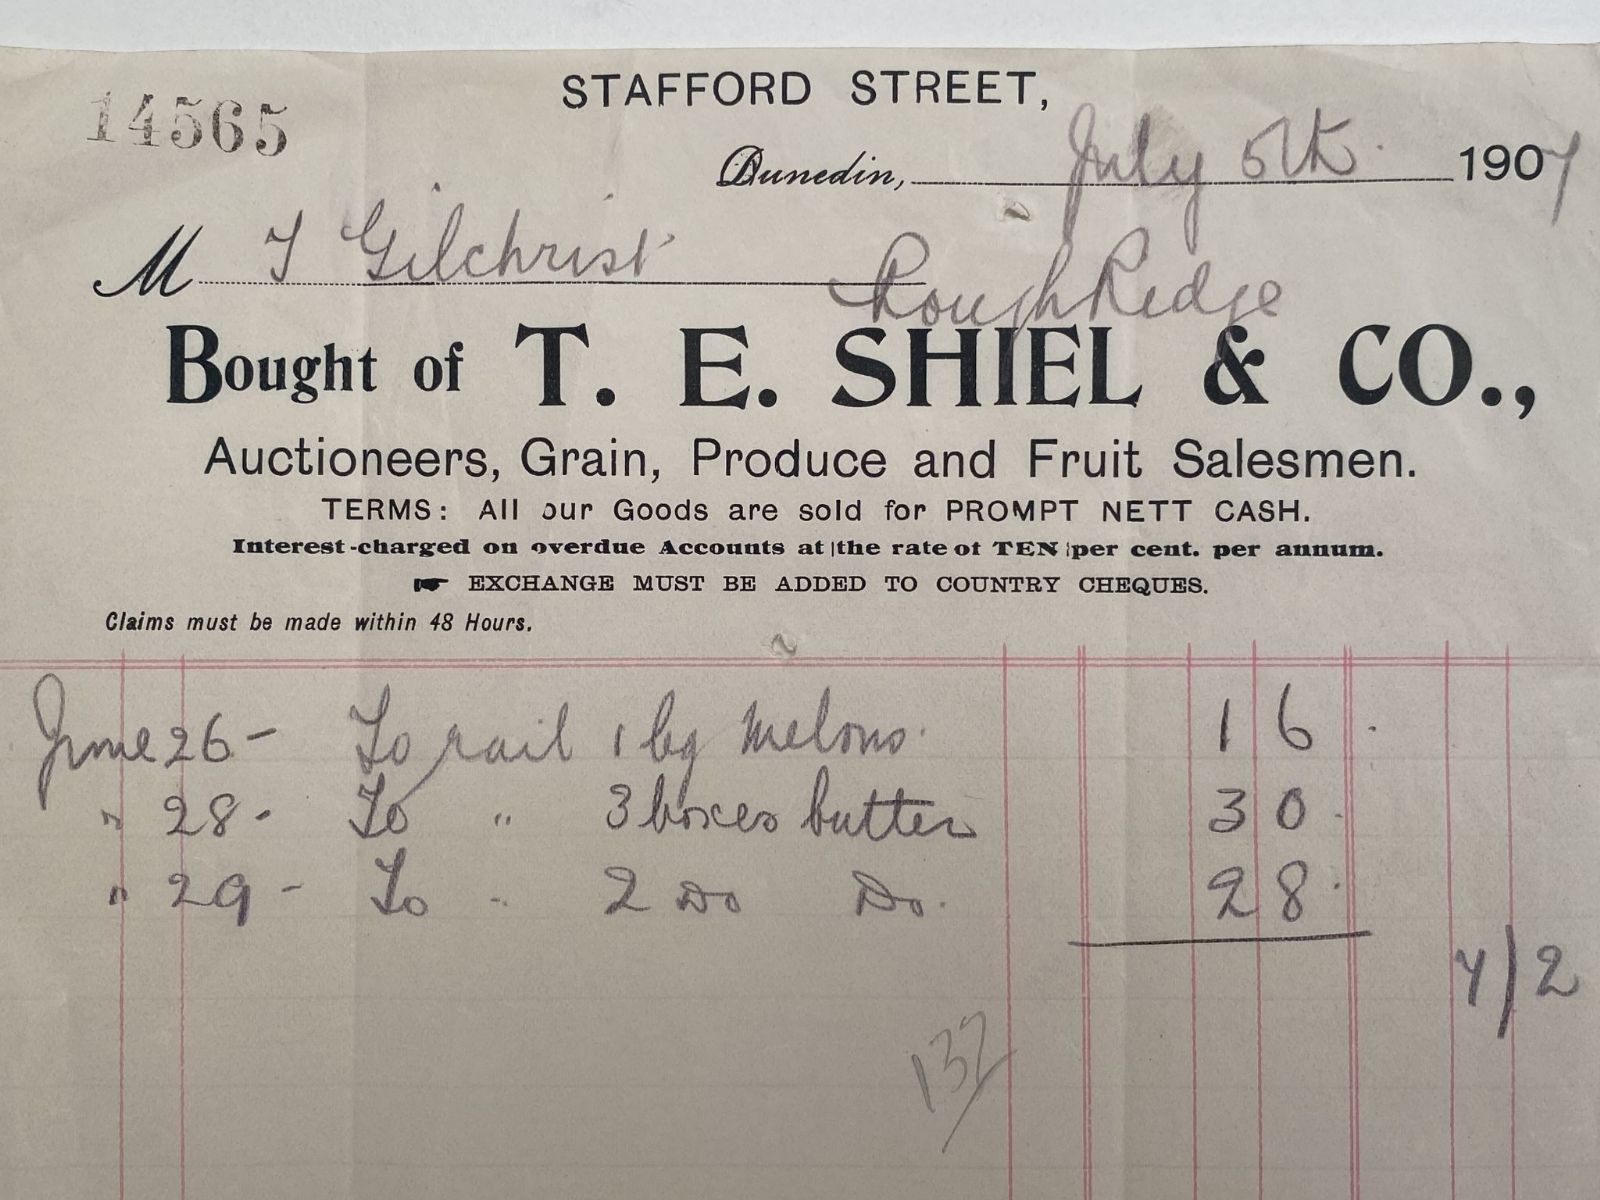 STAFFORD STREET,
14565
Dunedin, July 5th 1907
M T Gilchrist
Rough Ridge
Bought of T. E. SHIEL & CO.,
Auctioneers, Grain, Produce and Fruit Salesmen.
TERMS: All our Goods are sold for PROMPT NETT CASH.
Interest-charged on overdue Accounts at the rate of TEN per cent. per annum.
☛ EXCHANGE MUST BE ADDED TO COUNTRY CHEQUES.
Claims must be made within 48 Hours.
June 26 - To rail 1 bg melons. 1 6
" 28 - To " 3 boxes butter 3 0
" 29 - To " 2 Do Do. 2 8
7/2
132